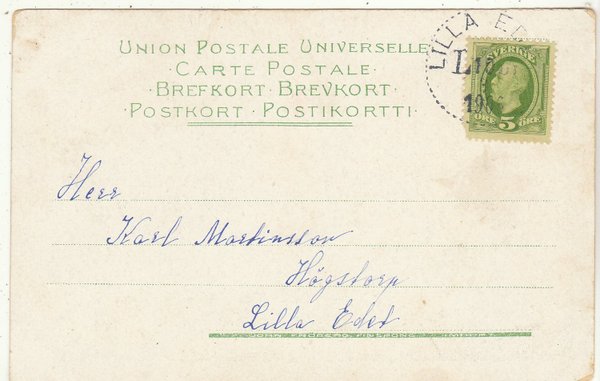 UNION POSTALE UNIVERSELLE
· CARTE POSTALE ·
· BREFKORT · BREVKORT ·
POSTKORT · POSTIKORTTI ·
LILLA
SVERIGE
ÖRE 5 ÖRE
Herr
Karl Martinsson
Högstorp
Lilla Edet